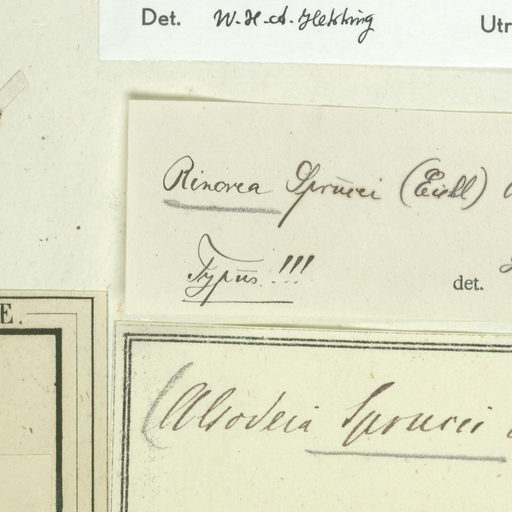 Det. W.H.A. Hekking Utr
Rinorea Sprucei (Eichl)
Typus!!!
det.
E.
(Alsodeia Sprucei